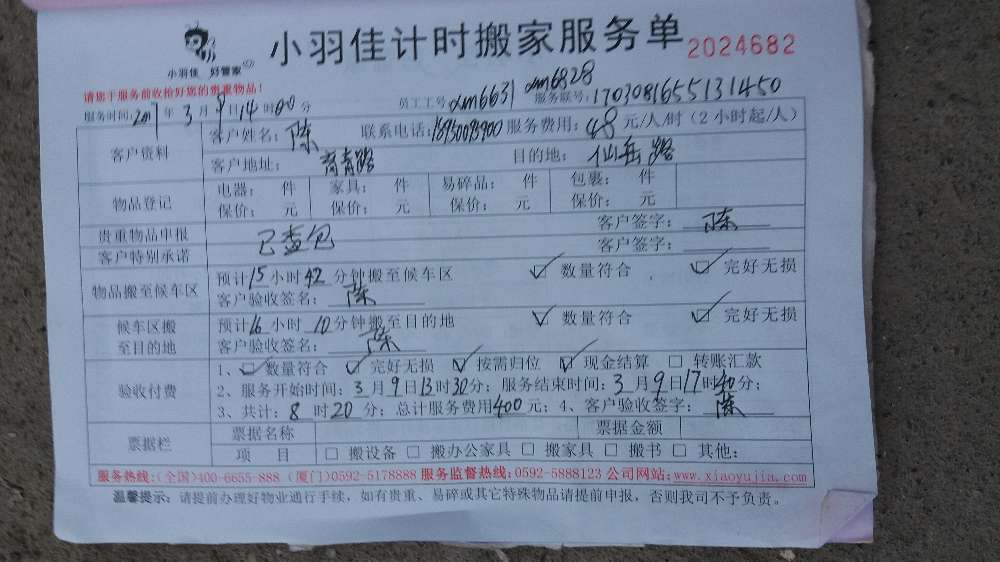 小羽佳计时搬家服务单 2024682
小羽佳 好管家
请您于服务前收拾好您的贵重物品!
服务时间:2017年3月9日14时00分 员工工号xm6631 xm6828 服务联号:1703081655131450
客户资料 客户姓名:陈 联系电话: 服务费用:48元/人/时(2小时起/人)
客户地址: 目的地:仙岳路
物品登记 电器: 件 家具: 件 易碎品: 件 包裹: 件
保价: 元 保价: 元 保价: 元 保价: 元
贵重物品申报 已查包 客户签字:陈
客户特别承诺 客户签字:
物品搬至候车区 预计15小时42分钟搬至候车区 ☑数量符合 ☑完好无损
客户验收签名:陈
候车区搬至目的地 预计16小时10分钟搬至目的地 ☑数量符合 ☑完好无损
客户验收签名:陈
验收付费 1、☑数量符合 ☑完好无损 ☑按需归位 ☑现金结算 □转账汇款
2、服务开始时间:3月9日13时30分;服务结束时间:3月9日17时40分;
3、共计:8时20分;总计服务费用400元;4、客户验收签字:陈
票据栏 票据名称 票据金额
项目 □搬设备 □搬办公家具 □搬家具 □搬书 □其他:
服务热线:(全国)400-6655-888 (厦门)0592-5178888 服务监督热线:0592-5888123 公司网站:www.xiaoyujia.com
温馨提示:请提前办理好物业通行手续,如有贵重、易碎或其它特殊物品请提前申报,否则我司不予负责。